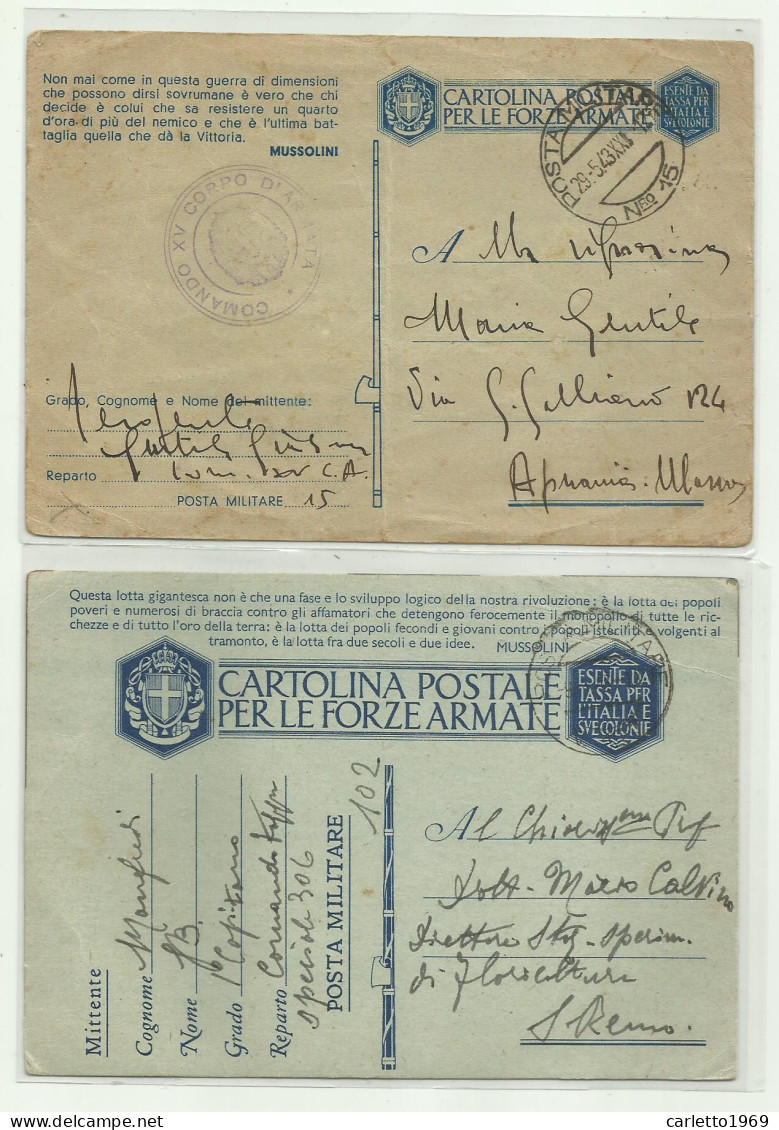 Non mai come in questa guerra di dimensioni
che possono dirsi sovrumane è vero che chi
decide è colui che sa resistere un quarto
d'ora di più del nemico e che è l'ultima bat-
taglia quella che dà la Vittoria.
MUSSOLINI
CARTOLINA POSTALE
PER LE FORZE ARMATE
ESENTE DA
TASSA PER
L'ITALIA E
SVE COLONIE
POSTA MILITARE
29.5.43 XXI
Nro 15
COMANDO XV CORPO D'ARMATA
A
Maria Gentile
Via G. Galliano 124
Grado, Cognome e Nome del mittente:
Gentile
Reparto Com. XV C.A.
POSTA MILITARE 15
Questa lotta gigantesca non è che una fase e lo sviluppo logico della nostra rivoluzione: è la lotta dei popoli
poveri e numerosi di braccia contro gli affamatori che detengono ferocemente il monopolio di tutte le ric-
chezze e di tutto l'oro della terra: è la lotta dei popoli fecondi e giovani contro i popoli isteriliti e volgenti al
tramonto, è la lotta fra due secoli e due idee. MUSSOLINI
CARTOLINA POSTALE
PER LE FORZE ARMATE
ESENTE DA
TASSA PER
L'ITALIA E
SVE COLONIE
Mittente
Cognome Manfredi
Nome G.B.
Grado 1° Capitano
Reparto Comando Tappa
speciale 306
POSTA MILITARE 102
Al
Dott. Mario Calvino
Direttore Staz. Sperim.
di Floricoltura
S. Remo.
carletto1969